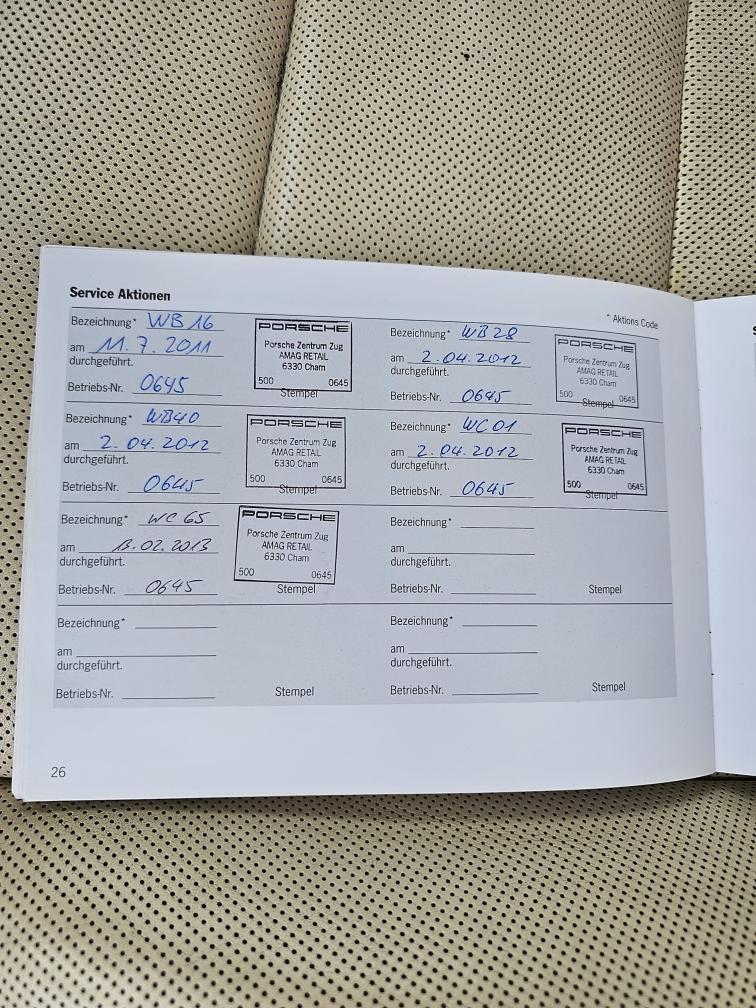 Service Aktionen
* Aktions Code
Bezeichnung* WB16
am 11.7.2011
durchgeführt.
Betriebs-Nr. 0645
PORSCHE
Porsche Zentrum Zug
AMAG RETAIL
6330 Cham
500 0645
Stempel
Bezeichnung* WB28
am 2.04.2012
durchgeführt.
Betriebs-Nr. 0645
PORSCHE
Porsche Zentrum Zug
AMAG RETAIL
6330 Cham
500 0645
Stempel
Bezeichnung* WB40
am 2.04.2012
durchgeführt.
Betriebs-Nr. 0645
PORSCHE
Porsche Zentrum Zug
AMAG RETAIL
6330 Cham
500 0645
Stempel
Bezeichnung* WC01
am 2.04.2012
durchgeführt.
Betriebs-Nr. 0645
PORSCHE
Porsche Zentrum Zug
AMAG RETAIL
6330 Cham
500 0645
Stempel
Bezeichnung* WC65
am 13.02.2013
durchgeführt.
Betriebs-Nr. 0645
PORSCHE
Porsche Zentrum Zug
AMAG RETAIL
6330 Cham
500 0645
Stempel
Bezeichnung*
am
durchgeführt.
Betriebs-Nr.
Stempel
Bezeichnung*
am
durchgeführt.
Betriebs-Nr.
Stempel
Bezeichnung*
am
durchgeführt.
Betriebs-Nr.
Stempel
26